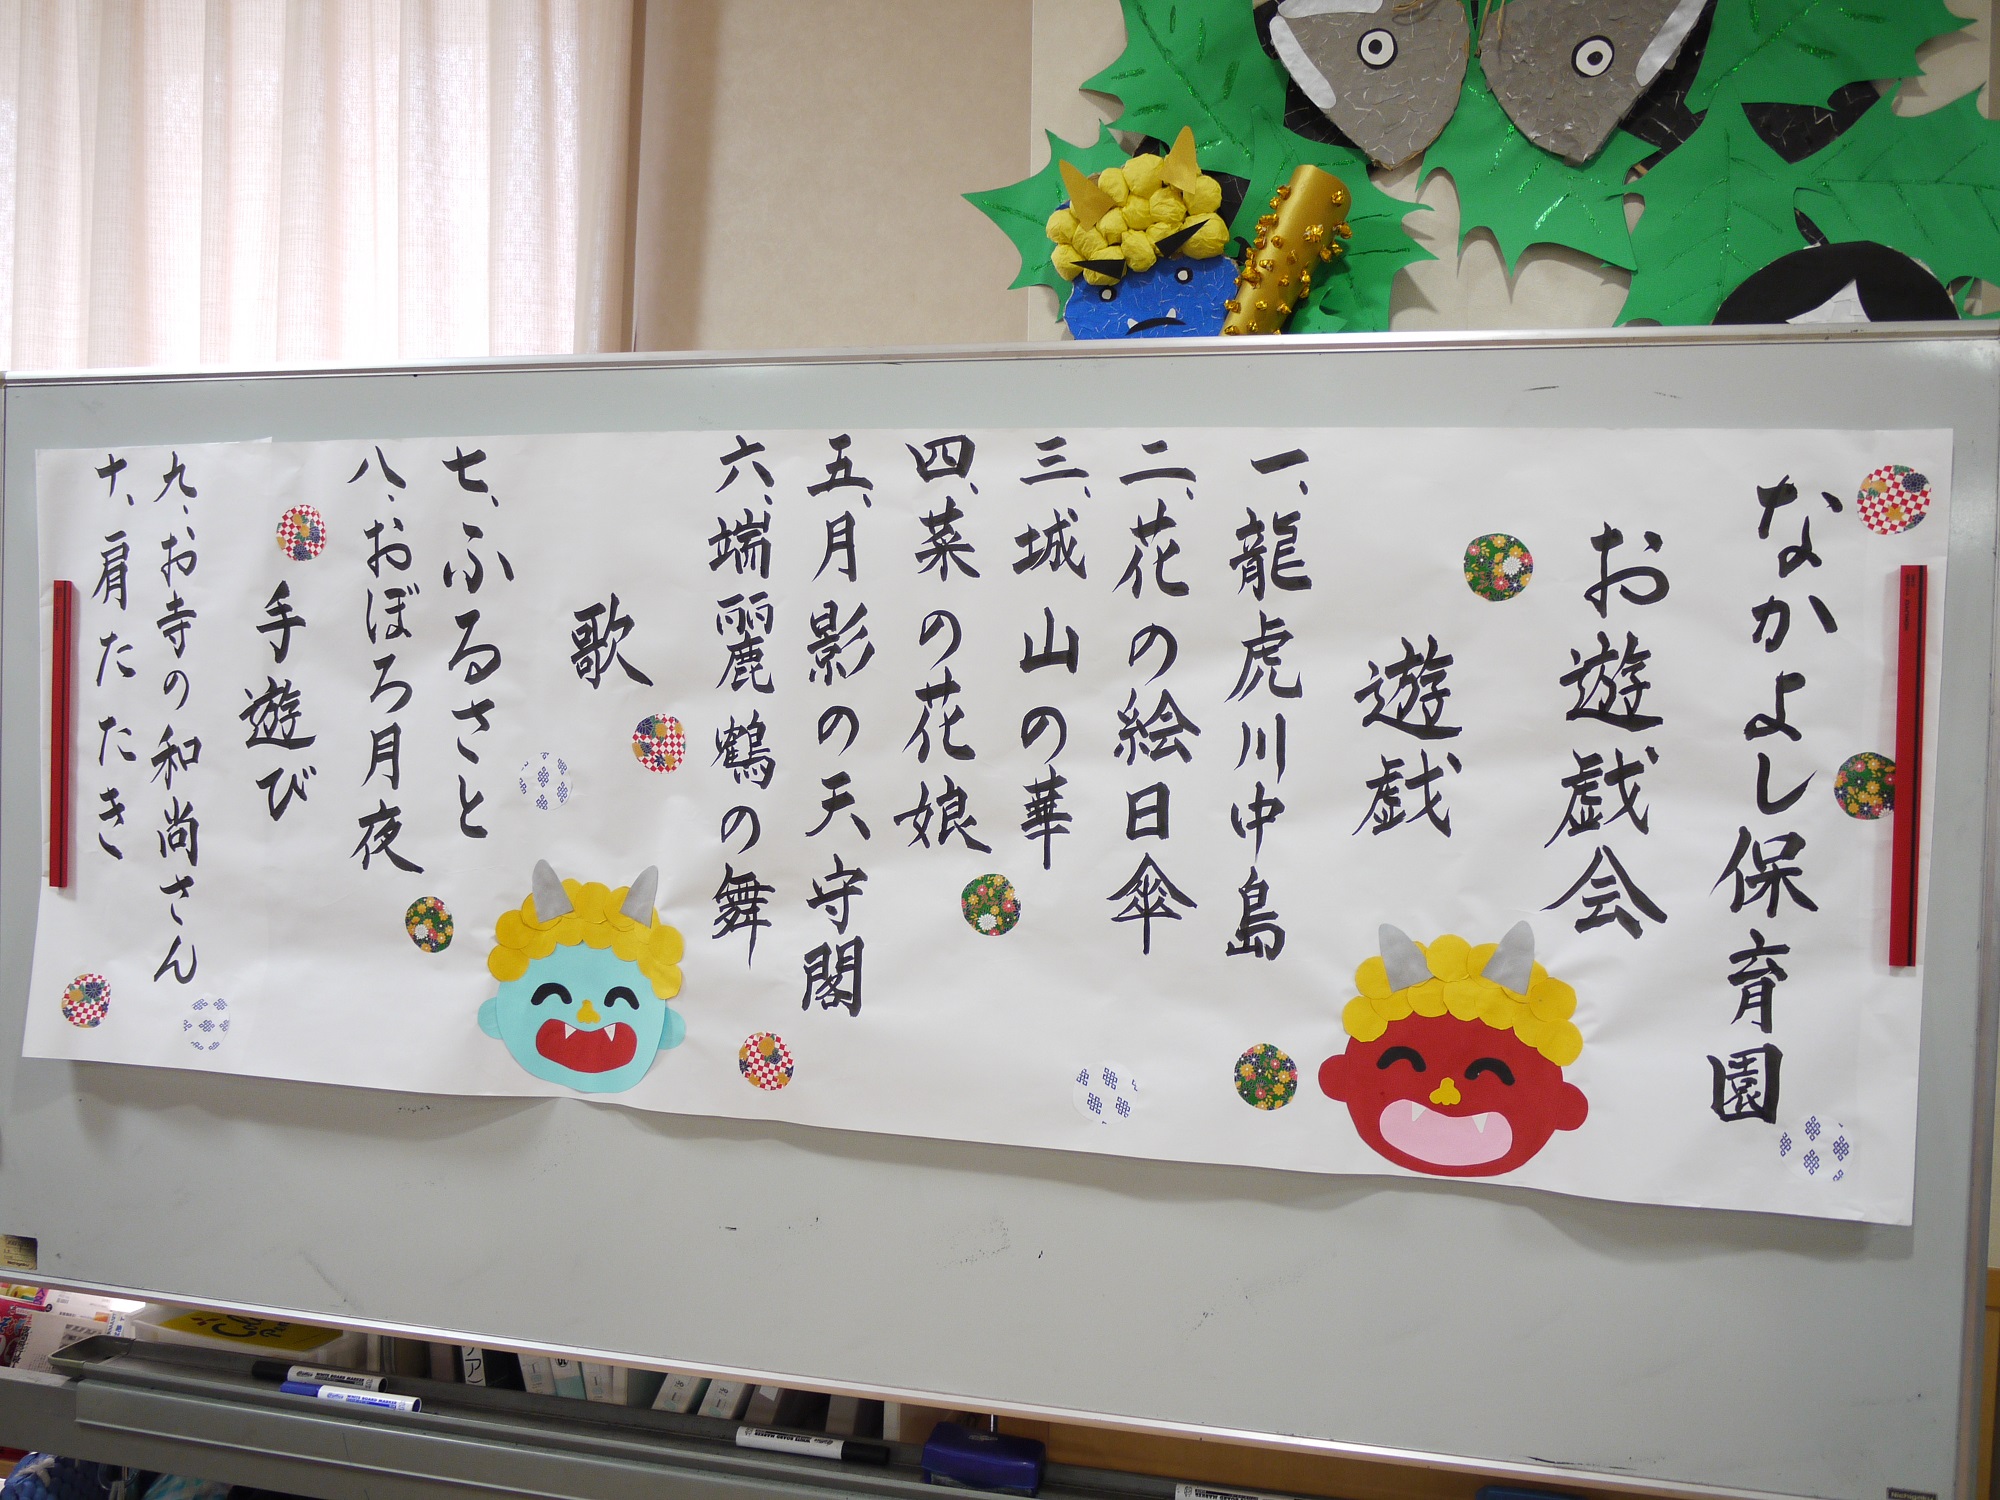 なかよし保育園
お遊戯会
遊戯
一、龍虎川中島
二、花の絵日傘
三、城山の華
四、菜の花娘
五、月影の天守閣
六、端麗鶴の舞
歌
七、ふるさと
八、おぼろ月夜
手遊び
九、お寺の和尚さん
十、肩たたき
WHITE BOARD MARKER
WHITE BOARD MARKER
WHITE BOARD MARKER